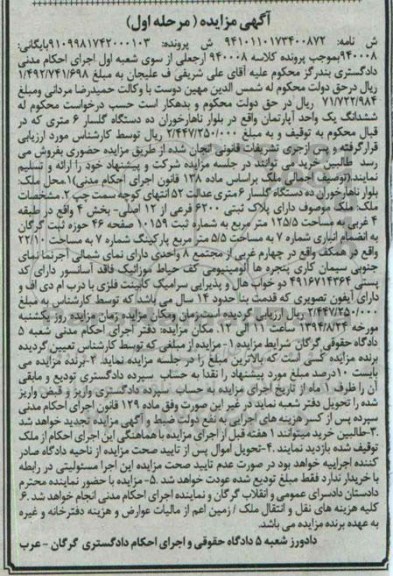 آگهی مزایده (مرحله اول)
ش نامه: ۹۴۱۰۱۱۰۱۷۳۴۰۰۸۷۲ ش پرونده: ۹۱۰۹۹۸۱۷۴۲۰۰۰۱۰۳ بایگانی:
۹۴۰۰۰۸ بموجب پرونده کلاسه ۹۴۰۰۰۸ ارجعلی از سوی شعبه اول اجرای احکام مدنی
دادگستری بندرگز محکوم علیه آقای علی شریفی ف علیجان به مبلغ ۱/۴۹۲/۷۴۱/۶۹۸
ریال درحق دولت محکوم له شمس الدین مهین دوست با وکالت حمیدرضا مردانی ومبلغ
۷۱/۷۲۲/۹۸۴ ریال در حق دولت محکوم و بدهکار است حسب درخواست محکوم له
ششدانگ یک واحد آپارتمان واقع در بلوار ناهارخوران ده دستگاه گلسار ۶ متری که در
قبال محکوم به توقیف و به مبلغ ۲/۴۴۷/۲۵۰/۰۰۰ ریال توسط کارشناس مورد ارزیابی
قرارگرفته و پس ازجری تشریفات قانونی انجان شده از طریق مزایده حضوری بفروش می
رسد طالبین خرید می توانند در جلسه مزایده شرکت و پیشنهاد خود را ارائه و تسلیم
نمایند.(توصیف اجمالی ملک براساس ماده ۱۳۸ قانون اجرای احکام مدنی)۱.محل ملک:
بلوار ناهارخوران ده دستگاه گلسار ۶ متری عدالت ۵۲ انتهای کوچه سمت چپ ۲.مشخصات
ملک: ملک موصوف دارای پلاک ثبتی ۶۲۰۰ فرعی از ۱۲ اصلی- بخش ۴ واقع در طبقه
۴ غربی به مساحت ۱۲۵/۵ متر مربع به شماره ثبت ۱۰۱۵۹ صفحه ۴۶ حوزه ثبت گرگان
به انضمام انباری شماره ۷ به مساحت ۵/۵ متر مربع پارکینگ شماره ۷ به مساحت ۲۲/۱۰
واقع در همکف واقع در چهارم غربی از مجتمع ۸ واحدی دارای نمای شمالی آجرنما نمای
جنوبی سیمان کاری پنجره ها آلومینیومی کف حیاط موزائیک فاقد آسانسور دارای کد
پستی ۴۹۱۶۷۱۴۳۶۴ دو خواب هال و پذیرایی سرامیک کابینت فلزی با درب ام دی اف و
دارای آیفون تصویری که قدمت بنا حدود ۱۴ سال می باشد که توسط کارشناس به مبلغ
۲/۴۴۷/۲۵۰/۰۰۰ ریال ارزیابی گردیده است.زمان ومکان مزایده زمان مزایده روز یکشنبه
مورخه ۱۳۹۴/۸/۲۴ ساعت ۱۱ الی ۱۲. مکان مزایده: دفتر اجرای احکام مدنی شعبه ۵
دادگاه حقوقی گرگان شرایط مزایده ۱- مزایده از مبلغی که توسط کارشناس تعیین گردیده
برنده مزایده کسی است که بالاترین مبلغ را در جلسه مزایده نماید. ۲-برنده مزایده می
بایست ۱۰درصد مبلغ مورد پیشنهاد را نقدا به حساب سپرده دادگستری تودیع و مابقی
آن را ظرف ۱ ماه از تاریخ اجرای مزایده به حساب سپرده دادگستری واریز و قبض واریز
شده را تحویل دفتر شعبه نماید در غیر این صورت وفق ماده ۱۲۹ قانون اجرای احکام مدنی
سپرده پس از کسر هزینه های اجرایی به نفع دولت ضبط و آگهی مزایده تجدید خواهد شد
۳-طالبین خرید میتوانند ۱ هفته قبل از اجرای مزایده با هماهنگی این اجرای احکام از ملک
توقیف شده بازدید نمایند. ۴-تحویل اموال پس از تایید صحت مزایده از ناحیه دادگاه صادر
کننده اجراییه خواهد بود در صورت عدم تایید صحت مزایده این اجرا مسئولیتی در رابطه
با خریدار ندارد فقط مبلغ تودیع شده عودت خواهد شد. ۵-مزایده با حضور نماینده محترم
دادستان دادسرای عمومی و انقلاب گرگان و نماینده اجرای احکام مدنی انجام خواهد شد. ۶-
کلیه هزینه های نقل و انتقال ملک / زمین اعم از مالیات عوارض و هزینه دفترخانه و غیره
به عهده برنده مزایده می باشد.
دادورز شعبه ۵ دادگاه حقوقی و اجرای احکام دادگستری گرگان – عرب